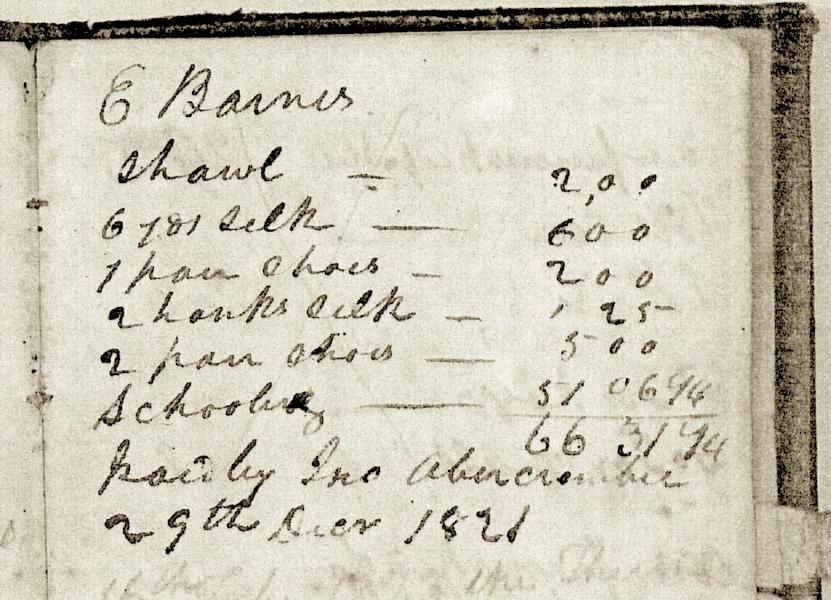 E Barnes
Shawl — 2,00
6 yds Silk — 6 00
1 pair Shoes — 2 00
2 hanks Silk — , 25
2 pair Shoes — 5 00
Schooling — 51 06 1/4
66 31 1/4
paid by Jno Abercrombie
29th Decr 1821